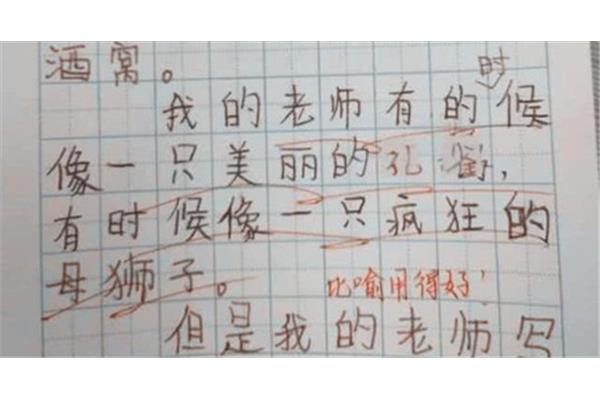 酒窝。
我的老师有的时候
像一只美丽的孔雀,
有时候像一只疯狂的
母狮子。
比喻用得好!
但是我的老师写